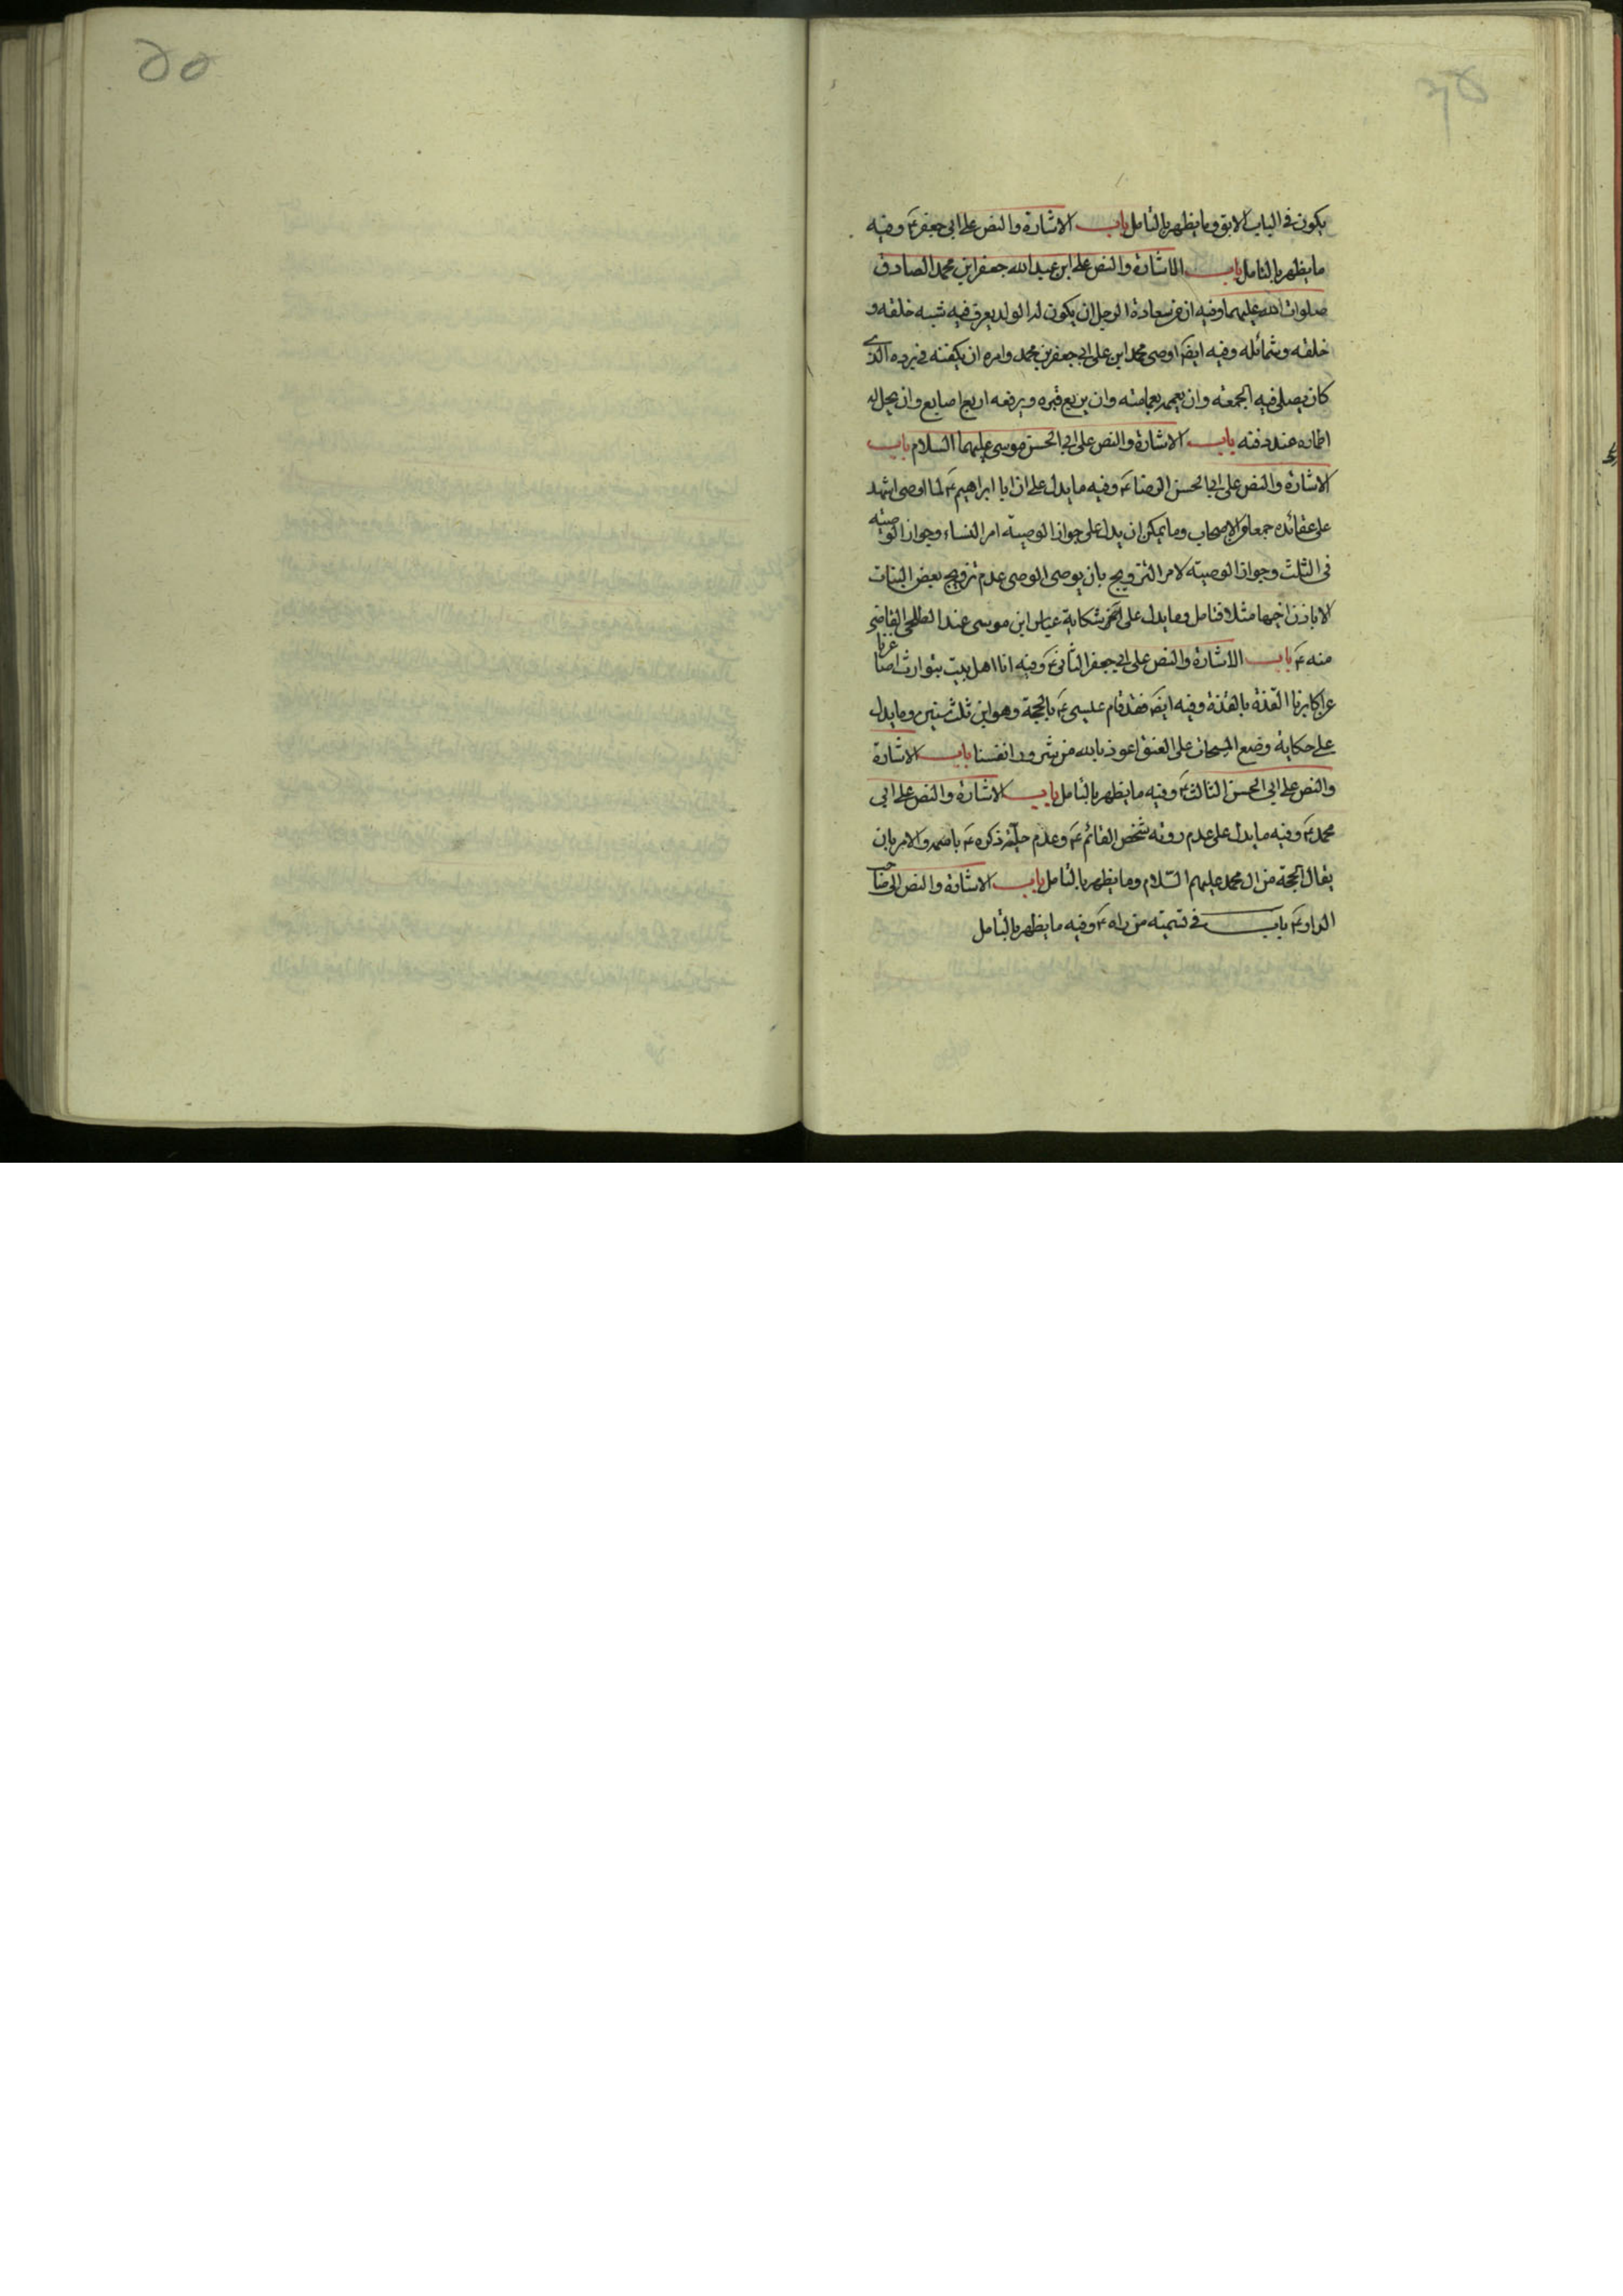 يكون فى الباب الابق وما يظهر بالتامل باب الاشارة والنص على ابى جعفر ع وفيه
ما يظهر بالتامل باب الاشارة والنص على ابن عبد الله جعفر ابن محمد الصادق
صلوات الله عليهما وفيه ان من سعادة الرجل ان يكون له الولد يعرف فيه شبه خلقه و
خلقه وشمائله وفيه ايضا اوصى محمد ابن على الى جعفر بن محمد وامره ان يكفنه فى برده الذى
كان يصلى فيه الجمعة وان يعممه بعمامته وان يربع قبره ويرفعه اربع اصابع وان يحل له
اطماره عند دفنه باب الاشارة والنص على ابى الحسن موسى عليهما السلام باب
الاشارة والنص على ابى الحسن الرضا ع وفيه ما يدل على ان ابا ابراهيم ع لما اوصى اشهد
على عقائده جمعا من الاصحاب وما يمكن ان يدل على جواز الوصية امر النساء وجواز الوصية
فى الثلث وجواز الوصية لامر التزويج بان يوصى الوصى عدم تزويج بعض البنات
الا باذن اخيها مثلا فتامل وما يدل على شكاية عباس ابن موسى عند الطلحى القاضى
منه ع باب الاشارة والنص على ابى جعفر الثانى ع وفيه انا اهل بيت يتوارث اصاغرنا
عن اكابرنا القذة بالقذة وفيه ايضا فقد قام عيسى ع بالحجة وهو ابن ثلث سنين وما يدل
على حكاية وضع المسحاة على العنق اعوذ بالله من شرور انفسنا باب الاشارة
والنص على ابى الحسن الثالث ع وفيه ما يظهر بالتامل باب الاشارة والنص على ابى
محمد ع وفيه ما يدل على عدم روئه شخص القائم ع وعدم حلية ذكره ع باسمه والامر بان
يقال الحجة من ال محمد عليهم السلام وما يظهر بالتامل باب الاشارة والنص الى صاحب
الدار ع باب فى تسميته من راه ع وفيه ما يظهر بالتامل